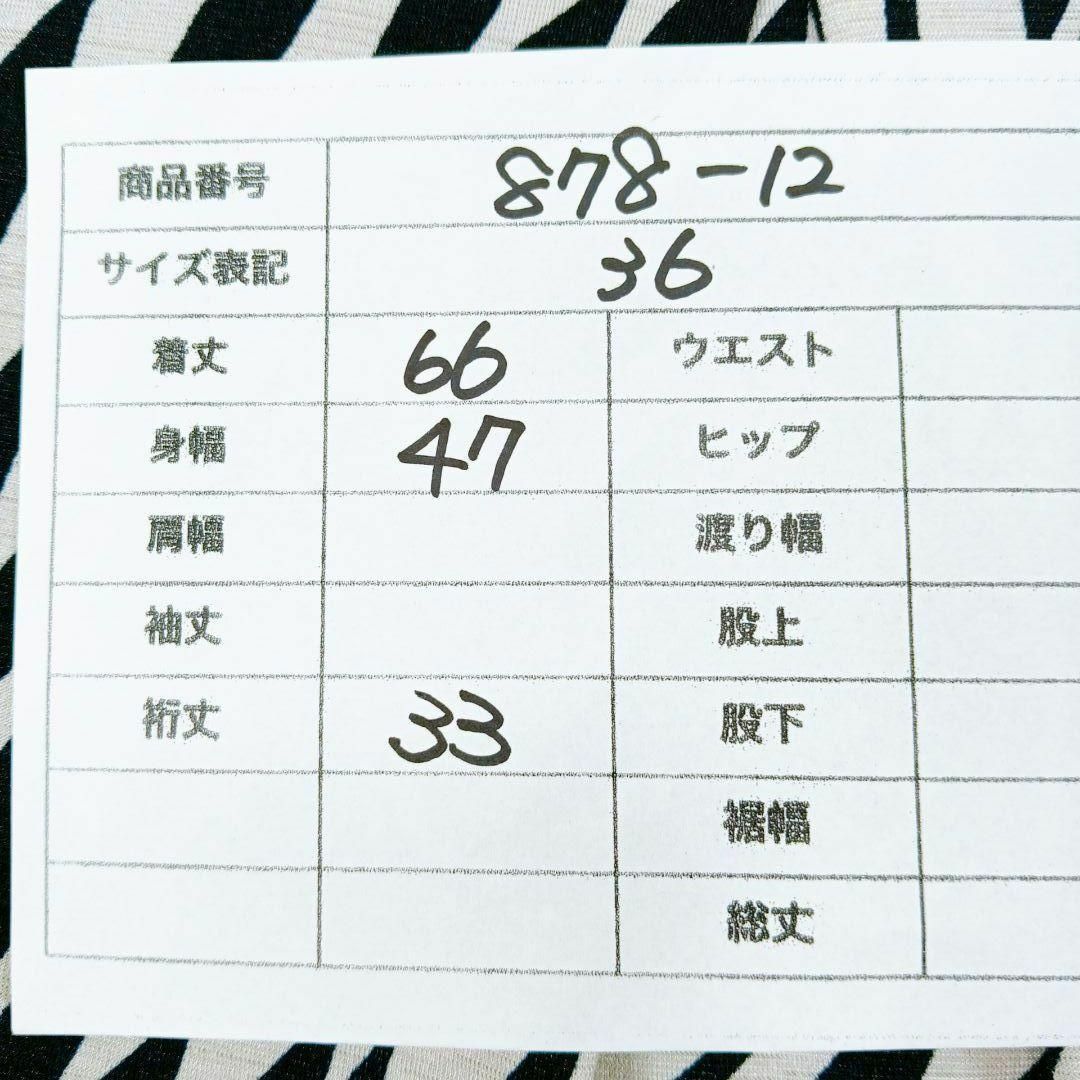 商品番号 878-12
サイズ表記 36
着丈 66 ウエスト
身幅 47 ヒップ
肩幅 渡り幅
袖丈 股上
裄丈 33 股下
裾幅
総丈